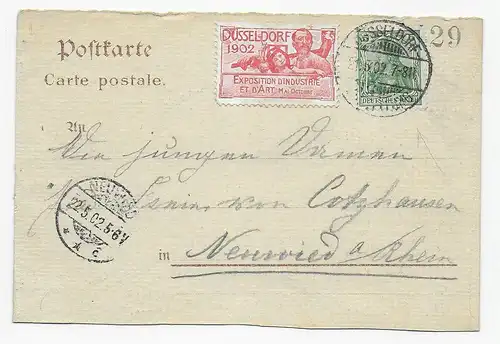 Postkarte
Carte postale.
DÜSSELDORF
1902
EXPOSITION D'INDUSTRIE
ET D'ART. MAI-OCTOBRE
DÜSSELDORF
5.02 7-8
29
An
Die jungen Damen
von Cotzhausen
in Neuwied a/Rhein
NEUWIED
22.5.02.5-6N
* * c